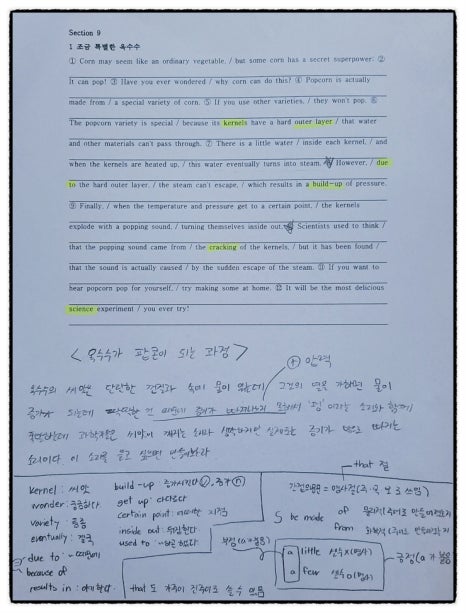 Section 9
1 조금 특별한 옥수수
① Corn may seem like an ordinary vegetable, / but some corn has a secret superpower. ②
It can pop! ③ Have you ever wondered / why corn can do this? ④ Popcorn is actually
made from / a special variety of corn. ⑤ If you use other varieties, / they won't pop. ⑥
The popcorn variety is special / because its kernels have a hard outer layer / that water
and other materials can't pass through. ⑦ There is a little water / inside each kernel, / and
when the kernels are heated up, / this water eventually turns into steam. However, / due
to the hard outer layer, / the steam can't escape, / which results in a build-up of pressure.
⑨ Finally, / when the temperature and pressure get to a certain point, / the kernels
explode with a popping sound, / turning themselves inside out. Scientists used to think /
that the popping sound came from / the cracking of the kernels, / but it has been found /
that the sound is actually caused / by the sudden escape of the steam. ⑪ If you want to
hear popcorn pop for yourself, / try making some at home. ⑫ It will be the most delicious
science experiment / you ever try!
<옥수수가 팝콘이 되는 과정>
+ 압력
옥수수의 씨앗은 단단한 겉질과 속에 물이 있는데 그것에 열을 가하면 물이
증기가 되는데 소리와 함께
과학자들은 씨앗이 깨지는 소리라 생각하지만
소리이다. 이 소리를 듣고 싶으면 만들어봐라
that 절
kernel : 씨앗
build-up 증가시키다 v, 증가 n
간접의문문 = 명사절 (주·목·보로 쓰임)
wonder : 궁금하다
get up : 다다르다
variety : 품종
certain point : 어떠한 지점
be made of
from
eventually : 결국
inside out : 뒤집힌다
due to : ~때문에
used to : ~하곤 했다
because of
a little 셀수x (명사)
a few 셀수o (명사)
results in : 야기하다
that도 가주어 진주어로 쓸 수 있음